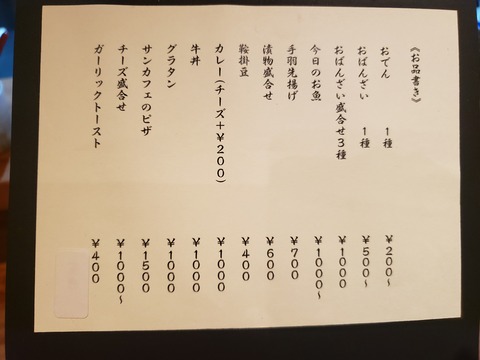 《お品書き》
おでん　1種　¥200~
おばんざい　1種　¥500~
おばんざい盛合せ3種　¥1000
今日のお魚　¥1000~
手羽先揚げ　¥700
漬物盛合せ　¥600
鞍掛豆　¥400
カレー(チーズ+¥200)　¥1000
牛丼　¥1000
グラタン　¥1000
サンカフェのピザ　¥1500
チーズ盛合せ　¥1000~
ガーリックトースト　¥400